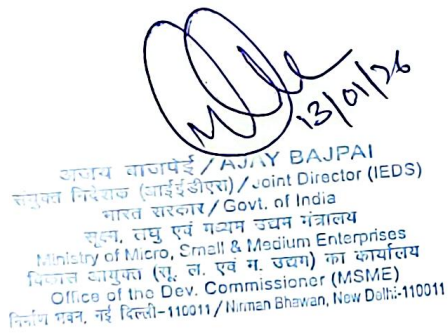 13/01/26
अजय वाजपेई / AJAY BAJPAI
संयुक्त निदेशक (आईईडीएस) / Joint Director (IEDS)
भारत सरकार / Govt. of India
सूक्ष्म, लघु एवं मध्यम उद्यम मंत्रालय
Ministry of Micro, Small & Medium Enterprises
विकास आयुक्त (सू. ल. एवं म. उद्यम) का कार्यालय
Office of the Dev. Commissioner (MSME)
निर्माण भवन, नई दिल्ली-110011 / Nirman Bhawan, New Delhi-110011